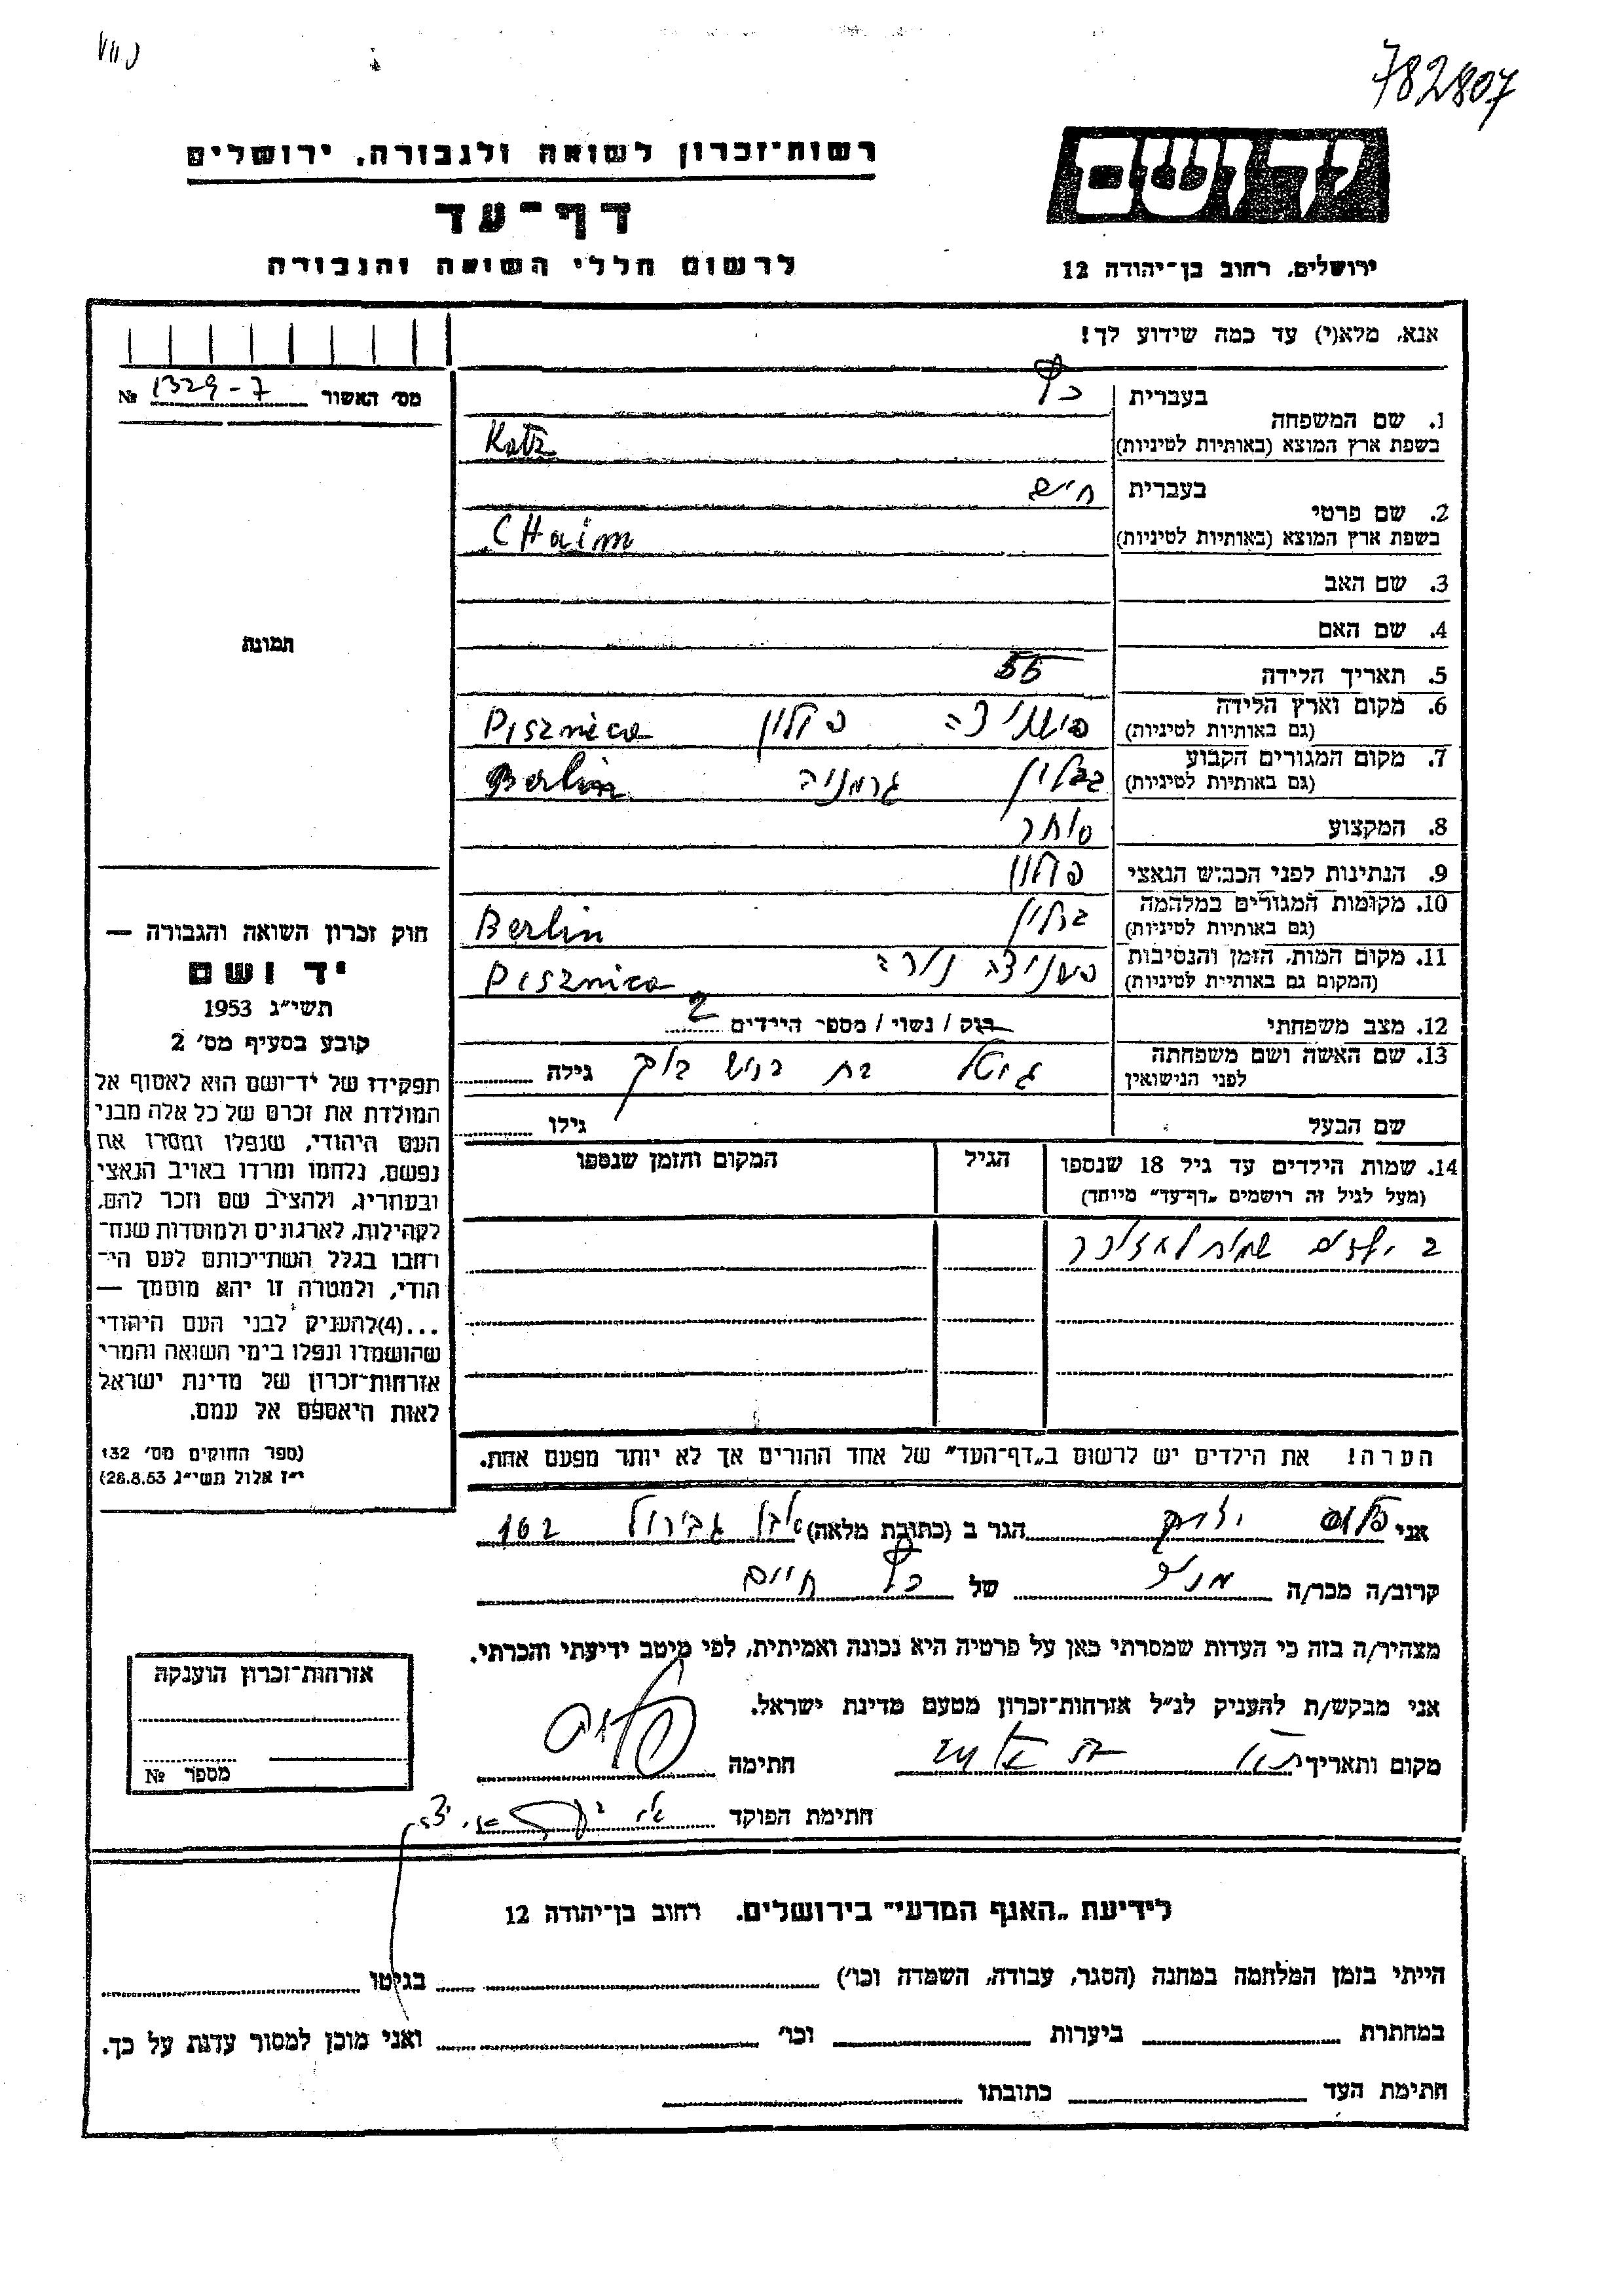 782807
רשות־זכרון לשואה ולגבורה, ירושלים
יד ושם
דף־עד
לרשום חללי השואה והגבורה
ירושלים, רחוב בן־יהודה 12
אנא, מלא(י) עד כמה שידוע לך!
מס׳ האשור № 1329-7
בעברית כץ
1. שם המשפחה
בשפת ארץ המוצא (באותיות לטיניות) Katz
בעברית חיים
2. שם פרטי
בשפת ארץ המוצא (באותיות לטיניות) CHaim
3. שם האב
4. שם האם
תמונה
5. תאריך הלידה 55
6. מקום וארץ הלידה
(גם באותיות לטיניות) פולין Pisznica
7. מקום המגורים הקבוע
(גם באותיות לטיניות) ברלין גרמניה Berlin
8. המקצוע סוחר
9. הנתינות לפני הכבוש הנאצי פולין
10. מקומות המגורים במלחמה
(גם באותיות לטיניות) ברלין Berlin
11. מקום המות, הזמן והנסיבות
(המקום גם באותיות לטיניות) Pisznica
12. מצב משפחתי רוק / נשוי / מספר הילדים 2
13. שם האשה ושם משפחתה
לפני הנישואין גיטל בת גילה
שם הבעל גילו
14. שמות הילדים עד גיל 18 שנספו
(מעל לגיל זה רושמים „דף־עד” מיוחד)
הגיל
המקום והזמן שנספו
2 ילדים
הערה! את הילדים יש לרשום ב„דף־העד” של אחד ההורים אך לא יותר מפעם אחת.
חוק זכרון השואה והגבורה —
יד ושם
תשי״ג 1953
קובע בסעיף מס׳ 2
תפקידו של יד־ושם הוא לאסוף אל
המולדת את זכרם של כל אלה מבני
העם היהודי, שנפלו ומסרו את
נפשם, נלחמו ומרדו באויב הנאצי
ובעוזריו, ולהציב שם וזכר להם,
לקהילות, לארגונים ולמוסדות שנח־
רבו בגלל השתייכותם לעם הי־
הודי, ולמטרה זו יהא מוסמך —
...(4)להעניק לבני העם היהודי
שהושמדו ונפלו בימי השואה והמרי
אזרחות־זכרון של מדינת ישראל
לאות היאספם אל עמם.
(ספר החוקים מס׳ 132
י״ז אלול תשי״ג 28.8.53)
אני הגר ב (כתובת מלאה) אבן גבירול 162
קרוב/ה מכר/ה של כץ חיים
מצהיר/ה בזה כי העדות שמסרתי כאן על פרטיה היא נכונה ואמיתית, לפי מיטב ידיעתי והכרתי.
אני מבקש/ת להעניק לנ״ל אזרחות־זכרון מטעם מדינת ישראל.
מקום ותאריך חתימה
חתימת הפוקד
אזרחות־זכרון הוענקה
מספר №
לידיעת „האגף המדעי” בירושלים, רחוב בן־יהודה 12
הייתי בזמן המלחמה במחנה (הסגר, עבודה, השמדה וכו׳) בגיטו
במחתרת ביערות וכו׳ ואני מוכן למסור עדות על כך.
חתימת העד כתובתו